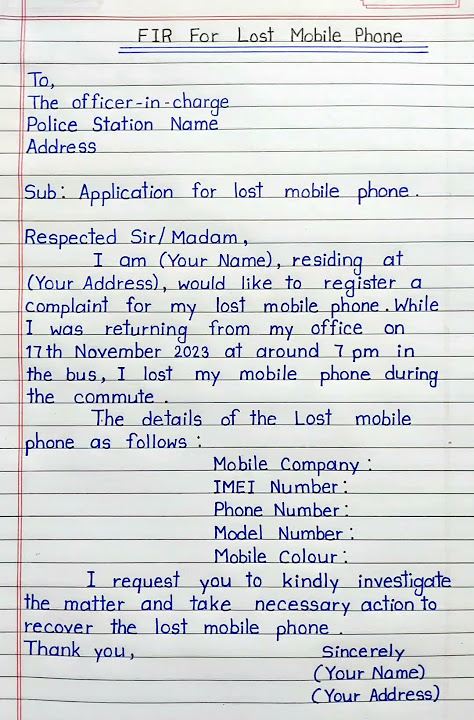 FIR For Lost Mobile Phone
To,
The officer-in-charge
Police Station Name
Address
Sub: Application for lost mobile phone.
Respected Sir/Madam,
I am (Your Name), residing at
(Your Address), would like to register a
complaint for my lost mobile phone. While
I was returning from my office on
17th November 2023 at around 7 pm in
the bus, I lost my mobile phone during
the commute.
The details of the Lost mobile
phone as follows:
Mobile Company:
IMEI Number:
Phone Number:
Model Number:
Mobile Colour:
I request you to kindly investigate
the matter and take necessary action to
recover the lost mobile phone.
Thank you, Sincerely
(Your Name)
(Your Address)